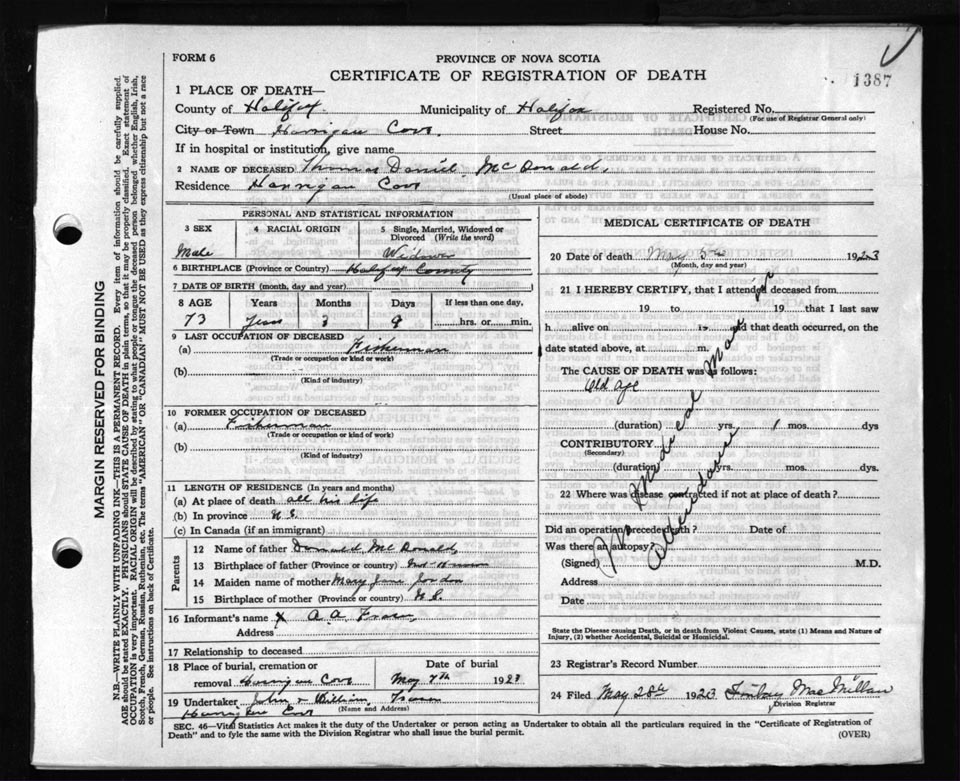 1387
FORM 6
PROVINCE OF NOVA SCOTIA
CERTIFICATE OF REGISTRATION OF DEATH
1 PLACE OF DEATH—
County of Halifax Municipality of Halifax Registered No.
(For use of Registrar General only)
City or Town Harrigan Cove Street House No.
If in hospital or institution, give name
2 NAME OF DECEASED Thomas Daniel McDonald
Residence Harrigan Cove
(Usual place of abode)
PERSONAL AND STATISTICAL INFORMATION
3 SEX 4 RACIAL ORIGIN 5 Single, Married, Widowed or Divorced (Write the word)
Male Widower
6 BIRTHPLACE (Province or Country) Halifax County
7 DATE OF BIRTH (month, day and year)
8 AGE Years Months Days If less than one day,
73 Years 3 9 hrs. or min.
9 LAST OCCUPATION OF DECEASED
(a) Fisherman
(Trade or occupation or kind of work)
(b)
(Kind of industry)
10 FORMER OCCUPATION OF DECEASED
(a) Fisherman
(Trade or occupation or kind of work)
(b)
(Kind of industry)
11 LENGTH OF RESIDENCE (In years and months)
(a) At place of death all his life
(b) In province N.S.
(c) In Canada (if an immigrant)
Parents
12 Name of father Donald McDonald
13 Birthplace of father (Province or country)
14 Maiden name of mother Mary Jane Gordon
15 Birthplace of mother (Province or country) N.S.
16 Informant's name X A. A. Fraser
Address
17 Relationship to deceased
18 Place of burial, cremation or removal Harrigan Cove
Date of burial
May 7th 1923
19 Undertaker John & William Fraser
(Name and Address)
Harrigan Cove
MEDICAL CERTIFICATE OF DEATH
20 Date of death May 5th 1923
(Month, day and year)
21 I HEREBY CERTIFY, that I attended deceased from
19 to 19 that I last saw
h alive on 19 and that death occurred, on
date stated above, at m.
The CAUSE OF DEATH was as follows:
Old age
(duration) yrs. 1 mos. dys
CONTRIBUTORY
(Secondary)
(duration) yrs. mos. dys.
22 Where was disease contracted if not at place of death?
Did an operation precede death? Date of
Was there an autopsy?
(Signed) M.D.
Address
Date
No Medical Man in
attendance
State the Disease causing Death, or in death from Violent Causes, state (1) Means and Nature of
Injury, (2) whether Accidental, Suicidal or Homicidal.
23 Registrar's Record Number
24 Filed May 28th 1923 Finlay MacMillan
Division Registrar
SEC. 46—Vital Statistics Act makes it the duty of the Undertaker or person acting as Undertaker to obtain all the particulars required in the "Certificate of Registration of
Death" and to fyle the same with the Division Registrar who shall issue the burial permit.
(OVER)
MARGIN RESERVED FOR BINDING
N.B.—WRITE PLAINLY, WITH UNFADING INK—THIS IS A PERMANENT RECORD. Every item of information should be carefully supplied.
AGE should be stated EXACTLY. PHYSICIANS should STATE CAUSE OF DEATH in plain terms, so that it may be properly classified. Exact statement of
OCCUPATION is very important. RACIAL ORIGIN will be described by stating to what people or tongue the deceased person belonged whether English, Irish,
Scotch, French, German, Russian, Ruthenian, etc. The terms "AMERICAN" or "CANADIAN" MUST NOT BE USED as they express citizenship but not a race
or people. See instructions on back of Certificate.